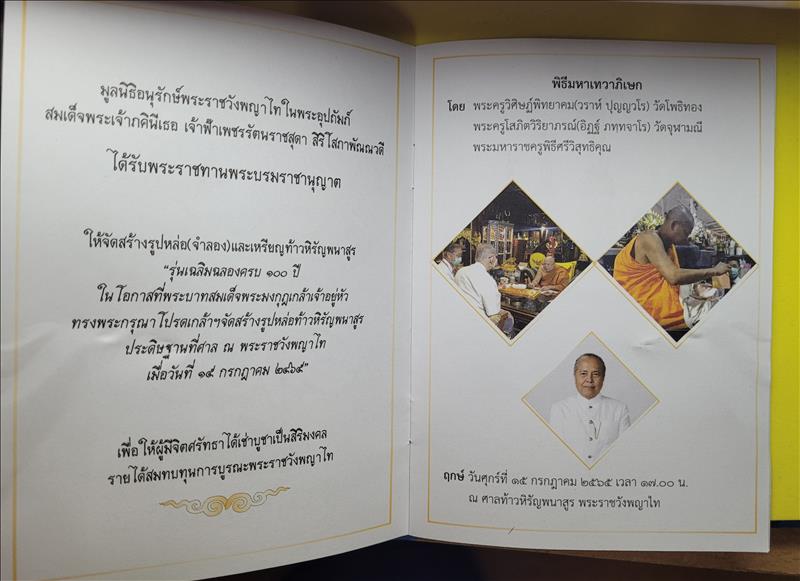 มูลนิธิอนุรักษ์พระราชวังพญาไทในพระอุปถัมภ์
สมเด็จพระเจ้าภคินีเธอ เจ้าฟ้าเพชรรัตนราชสุดา สิริโสภาพัณณวดี
ได้รับพระราชทานพระบรมราชานุญาต
ให้จัดสร้างรูปหล่อ(จำลอง)และเหรียญท้าวหิรัญพนาสูร
“รุ่นเฉลิมฉลองครบ ๑๐๐ ปี
ในโอกาสที่พระบาทสมเด็จพระมงกุฎเกล้าเจ้าอยู่หัว
ทรงพระกรุณาโปรดเกล้าฯจัดสร้างรูปหล่อท้าวหิรัญพนาสูร
ประดิษฐานที่ศาล ณ พระราชวังพญาไท
เมื่อวันที่ ๑๕ กรกฎาคม ๒๔๖๕”
เพื่อให้ผู้มีจิตศรัทธาได้เช่าบูชาเป็นสิริมงคล
รายได้สมทบทุนการบูรณะพระราชวังพญาไท
พิธีมหาเทวาภิเษก
โดย พระครูวิศิษฏ์พิทยาคม(วราห์ ปุญฺญวโร) วัดโพธิทอง
พระครูโสภิตวิริยาภรณ์(อิฏฐ์ ภทฺทจาโร) วัดจุฬามณี
พระมหาราชครูพิธีศรีวิสุทธิคุณ
ฤกษ์ วันศุกร์ที่ ๑๕ กรกฎาคม ๒๕๖๕ เวลา ๑๗.๐๐ น.
ณ ศาลท้าวหิรัญพนาสูร พระราชวังพญาไท